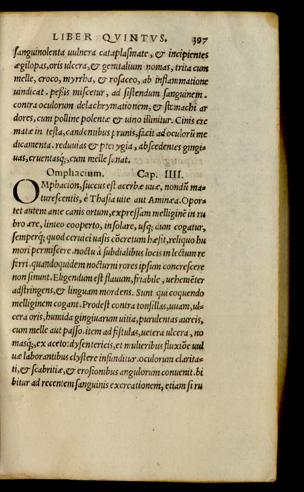 LIBER QVINTVS. 397
sanguinolenta uulnera cataplasmate, & incipientes
ægilopas, oris ulcera, & genitalium nomas, trita cum
melle, croco, myrrha, & rosaceo, ab inflammatione
uindicat. peßis miscetur, ad sistendum sanguinem.
contra oculorum delachrymationem, & stomachi ar
dores, cum polline polentæ & uino illinitur. Cinis cre
matæ in testa, candentibus prunis, facit ad oculorũ me
dicamenta. reduuias & pterygia, abscedentes gingi-
uas, cruentasq;, cum melle sanat.
Omphacium. Cap. IIII.
OMphacion, succus est acerbæ uuæ, nondũ ma-
turescentis, è Thasia uite aut Aminæa. Opor-
tet autem ante canis ortum, expressam melliginē in ru
bro ære, linteo cooperto, insolare, usq; dum cogatur,
semperq; quod cerui uasis cōcretum hæsit, reliquo hu
mori permiscere. noctu à subdialibus locis in lectium re
ferri. quandoquidem nocturni rores ipsum concrescere
non sinunt. Eligendum est flauum, friabile, uehemēter
adstringens, & linguam mordens. Sunt qui coquendo
melliginem cogant. Prodest contra tonsillas, uuam, ul-
cera oris, humida gingiuarum uitia, purulentas aureis,
cum melle aut passo. item ad fistulas, uetera ulcera, no
masq;, ex aceto: dysentericis, et mulieribus fluxiōe uul
uæ laborantibus clystere infunditur. oculorum clarita-
ti, & scabritiæ, & erosionibus angulorum conuenit. bi
bitur ad recentem sanguinis excreationem, etiam si ru